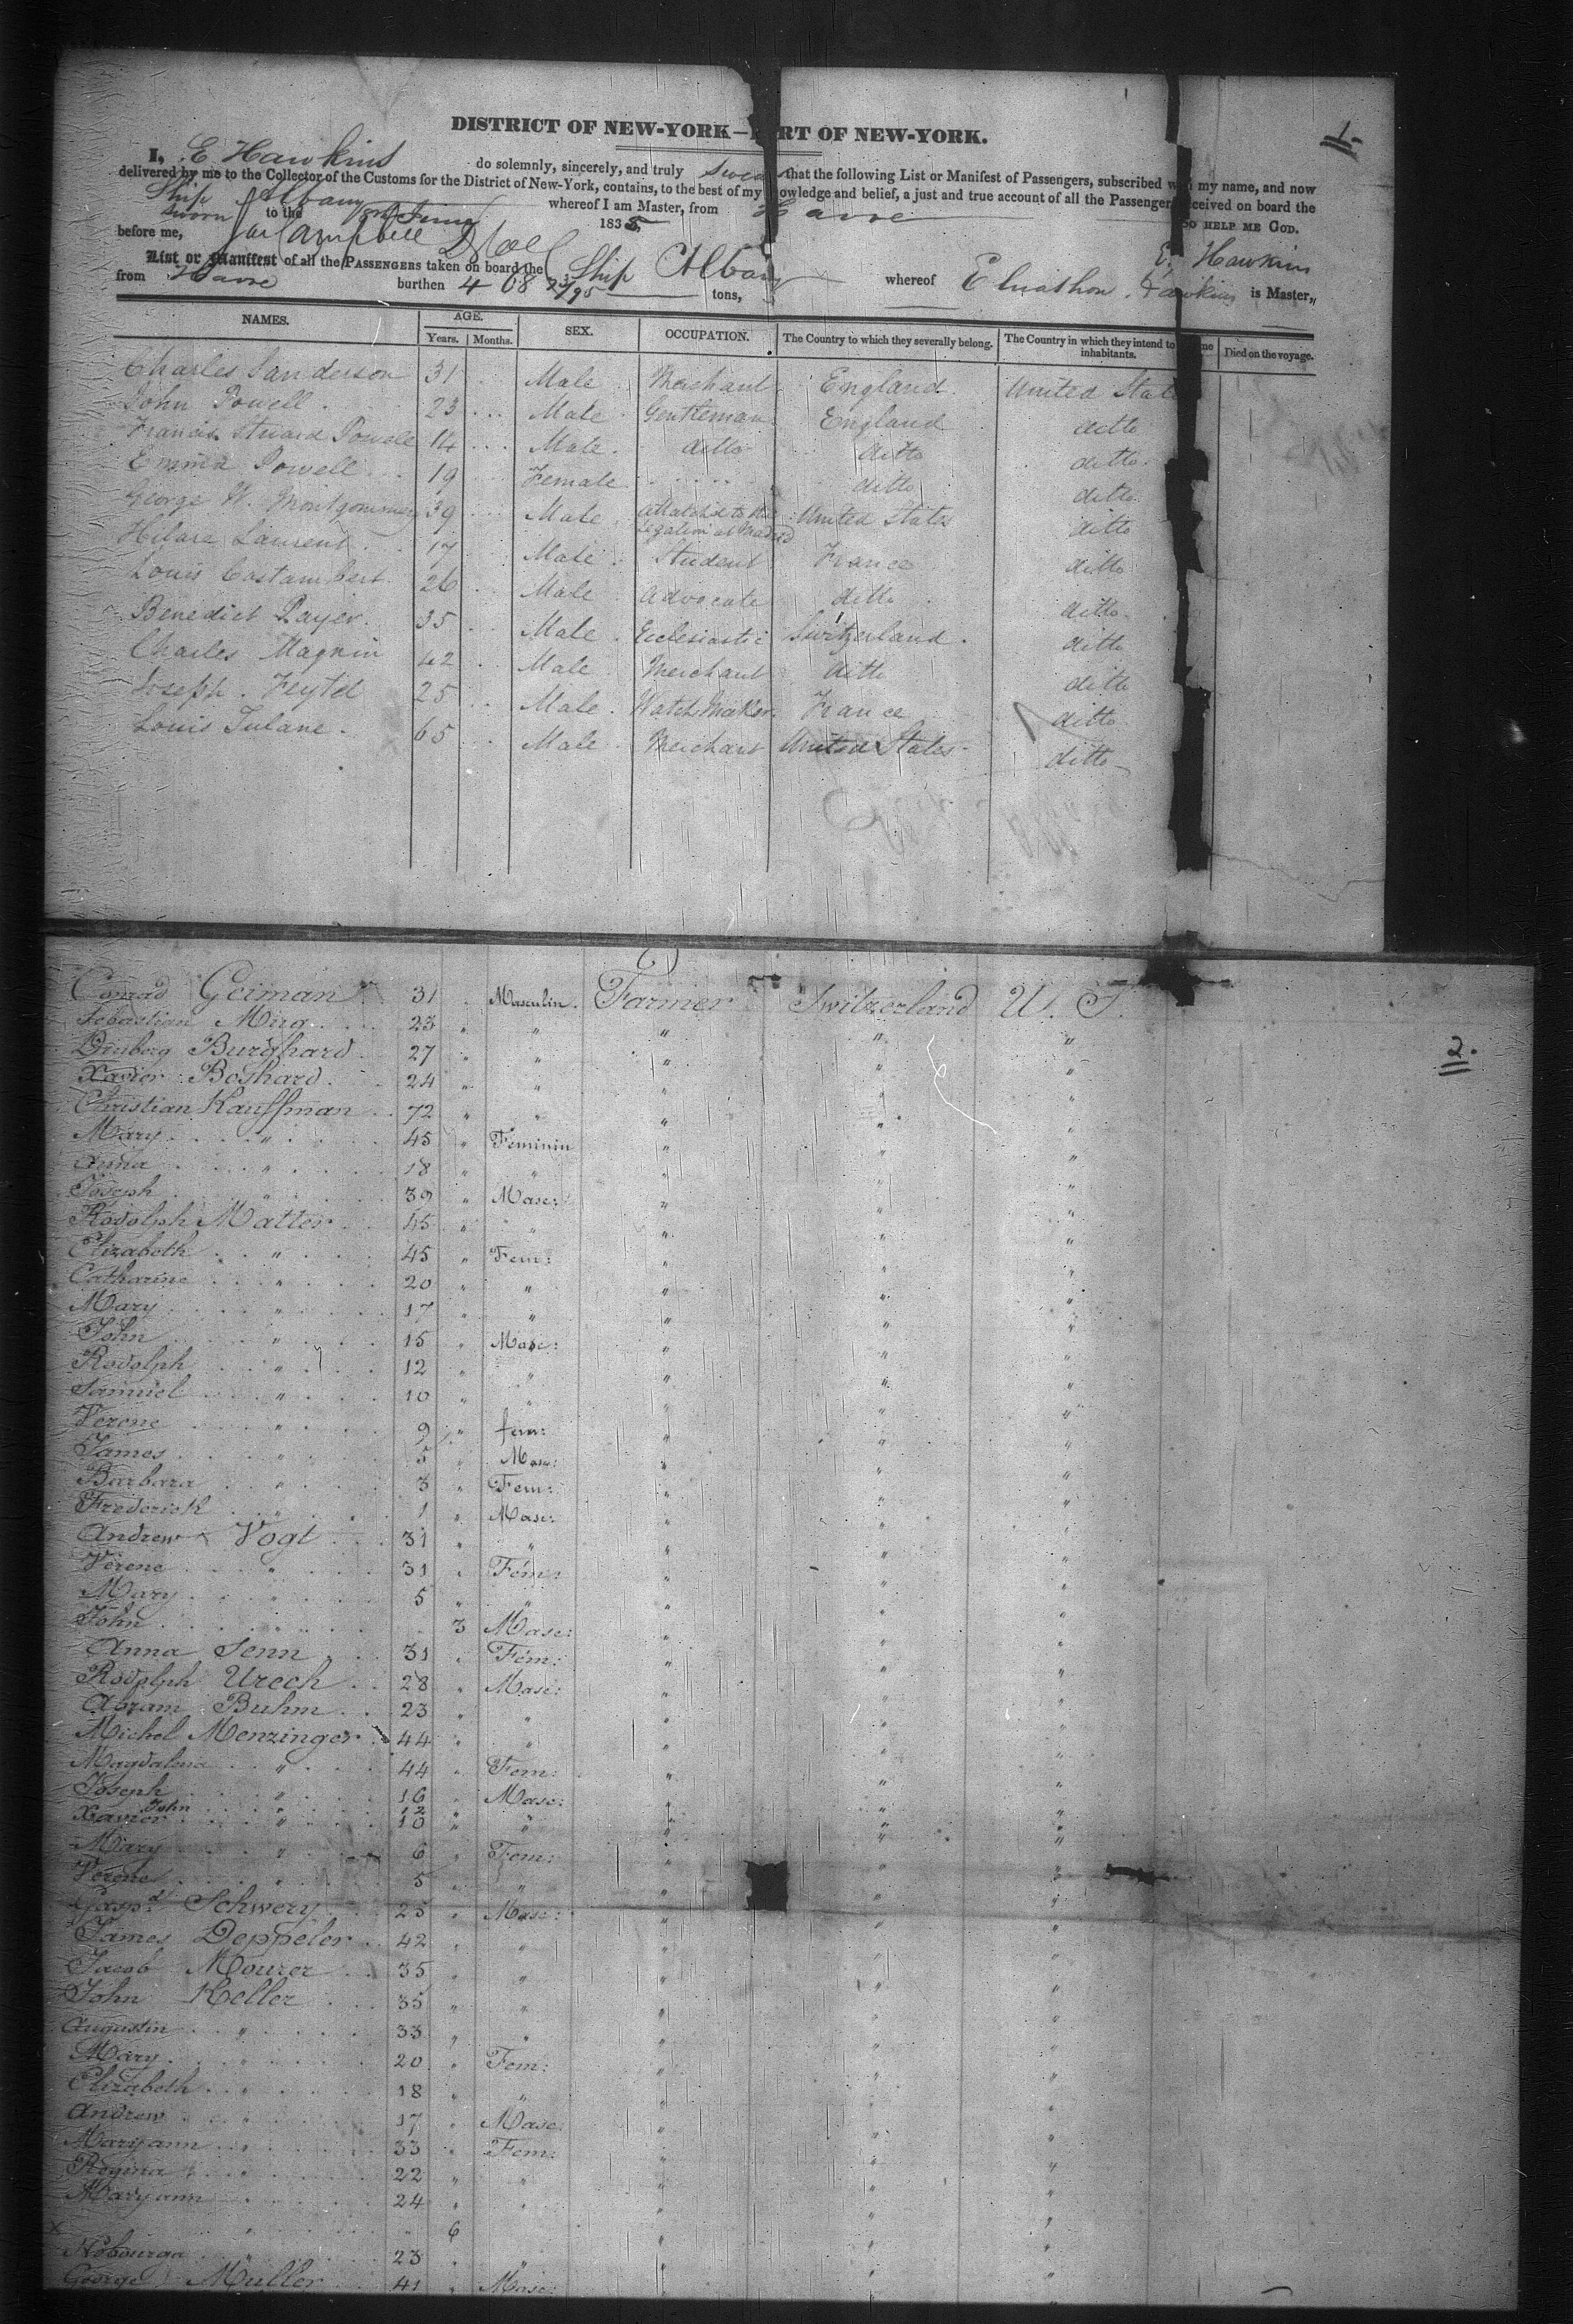 1.
DISTRICT OF NEW-YORK—P RT OF NEW-YORK.
I, E Hawkins do solemnly, sincerely, and truly swear that the following List or Manifest of Passengers, subscribed with my name, and now
delivered by me to the Collector of the Customs for the District of New-York, contains, to the best of my knowledge and belief, a just and true account of all the Passengers received on board the
Ship Albany whereof I am Master, from Havre
sworn to the 1835 SO HELP ME GOD.
before me, Campbell E. Hawkins
List or Manifest of all the PASSENGERS taken on board the Ship Albany whereof Hawkins is Master,
from Havre burthen 468 tons,
NAMES. AGE. Years. Months. SEX. OCCUPATION. The Country to which they severally belong. The Country in which they intend to inhabitants. Died on the voyage.
Charles Sanderson 31 Male Merchant England United States
John Powell 23 Male Gentleman England ditto
Francis Powell 14 Male ditto ditto ditto
Emma Powell 19 Female ditto ditto
George W. Montgommery 39 Male attached to the legation at Madrid United States ditto
Hilare Laurent 17 Male Student France ditto
Louis Costambert 26 Male Advocate ditto ditto
Benedict Payer 35 Male Ecclesiastic Switzerland ditto
Charles Magnin 42 Male Merchant ditto ditto
Joseph 25 Male Watch Maker France ditto
Louis Tulane 65 Male Merchant United States ditto
2.
Conrad Geiman 31 " Masculin Farmer Switzerland U. S.
Sebastian 23 " " " " "
Burghard 27 " " " " "
Xavier Boshard 24 " " " " "
Christian Kauffman 72 " " " " "
Mary " 45 " Feminin " " "
Anna " 18 " " " " "
Joseph " 39 " Masc: " " "
Rodolph Matter 45 " " " " "
Elizabeth " 45 " Fem: " " "
Catharine " 20 " " " " "
Mary " 17 " " " " "
John " 15 " Masc: " " "
Rodolph " 12 " " " " "
Samuel " 10 " " " " "
Verene " 9 " fem: " " "
James " 5 " Masc: " " "
Barbara " 3 " Fem: " " "
Frederick " 1 " Masc: " " "
Andrew Vogt 31 " " " " "
Verene " 31 " Fem: " " "
Mary " 5 " " " " "
John " 3 Masc: " " "
Anna Senn 31 " Fem: " " "
Rodolph Urech 28 " Masc: " " "
Abram Buhm 23 " " " " "
Michel Menzinger 44 " " " " "
Magdalena " 44 " Fem: " " "
Joseph " 16 " Masc: " " "
John " 12 " " " " "
Xavier " 10 " " " " "
Mary " 6 " Fem: " " "
Verene " 5 " " " " "
Gaspd Schwery 25 " Masc: " " "
James Deppeler 42 " " " " "
Jacob Mourer 35 " " " " "
John Keller 35 " " " " "
Augustin " 33 " " " " "
Mary " 20 " Fem: " " "
Elizabeth " 18 " " " " "
Andrew " 17 " Masc " " "
Maryann " 33 " Fem: " " "
Regina " 22 " " " " "
Maryann " 24 " " " " "
" " 6 " " "
23 " " " " "
George Muller 41 " Masc: